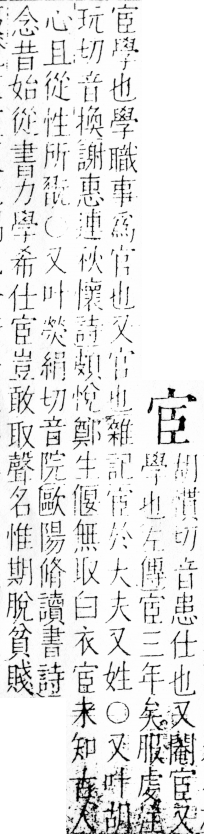 宦
胡慣切音患仕也又閹宦又
學也左傳宦三年矣服虔
宦學也學職事爲官也又官也雜記宦於大夫又姓○又叶胡
玩切音換謝惠連秋懷詩頗悅鄭生偃無取白衣宦未知古人
心且從性所翫○又叶熒絹切音院歐陽脩讀書詩
念昔始從書力學希仕宦豈敢取聲名惟期脫貧賤